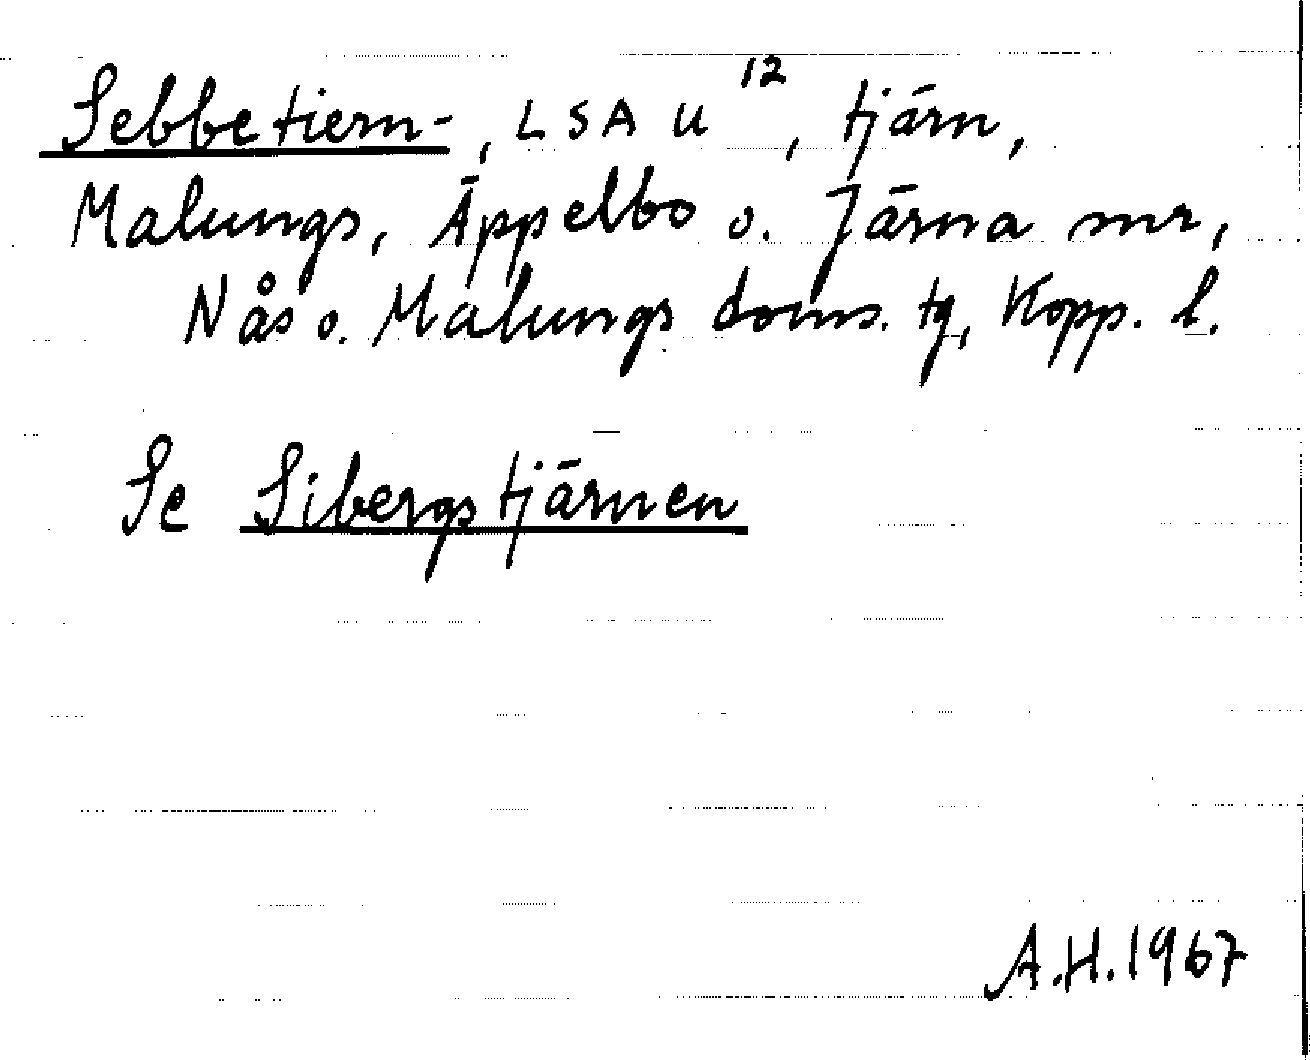 Sebbetiern-, LSA U 12, tjärn,
Malungs, Äppelbo o. Järna snr,
Nås o. Malungs doms. tg, Kopp. l.
Se Sibergstjärnen
A.H. 1967